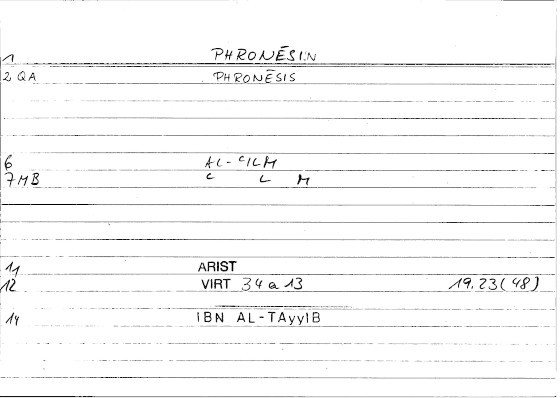 1 PHRONĒSIN
2 QA PHRONĒSIS
6 AL-ʿILM
7 MB ʿ L M
11 ARIST
12 VIRT 34 a 13 19.23(48)
14 IBN AL-TAyyIB